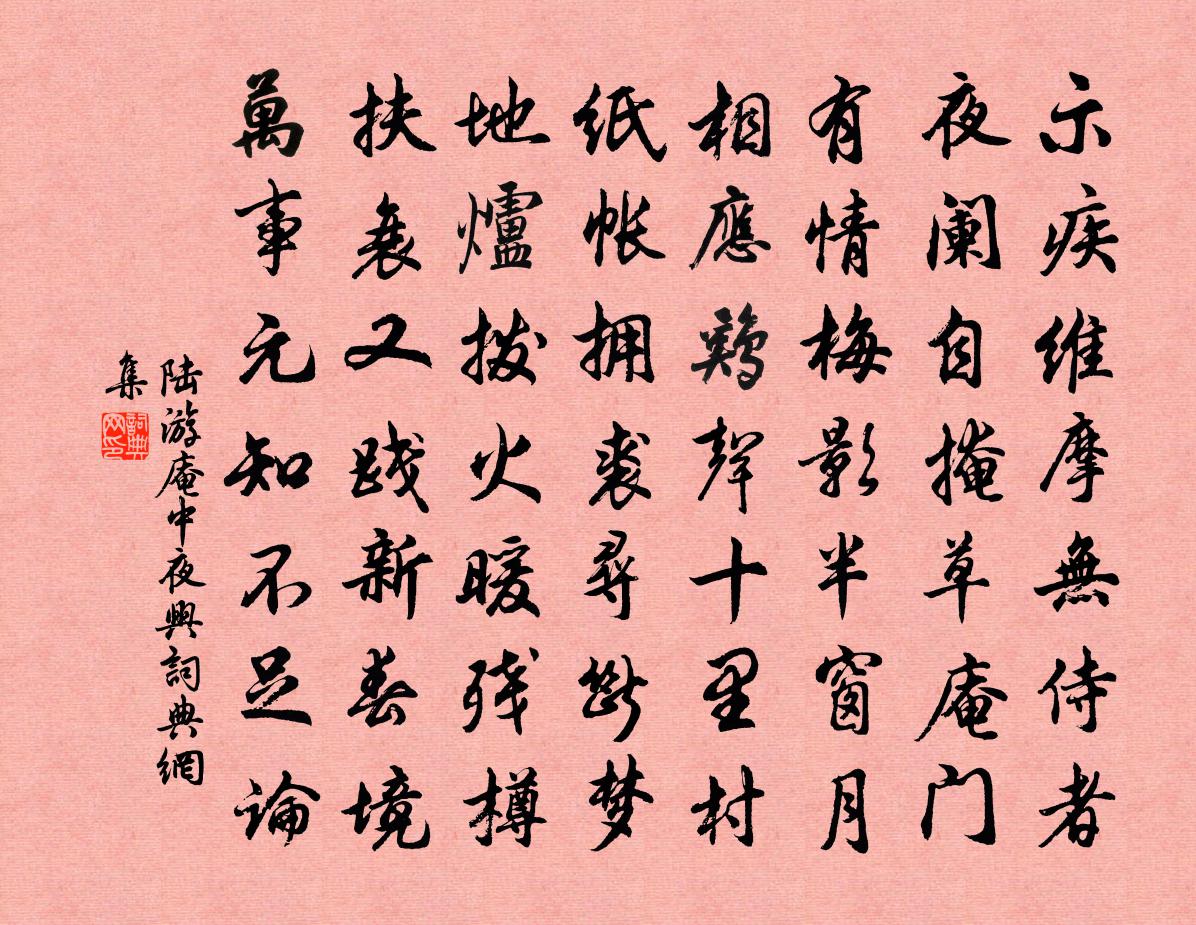 示疾維摩無侍者
夜阑自掩草庵门
有情梅影半窗月
相應鷄聲十里村
纸帐拥裘尋斷梦
地爐拨火暖残樽
扶衰又践新春境
萬事元知不足論
陆游庵中夜興詞典網
集
詞典网印